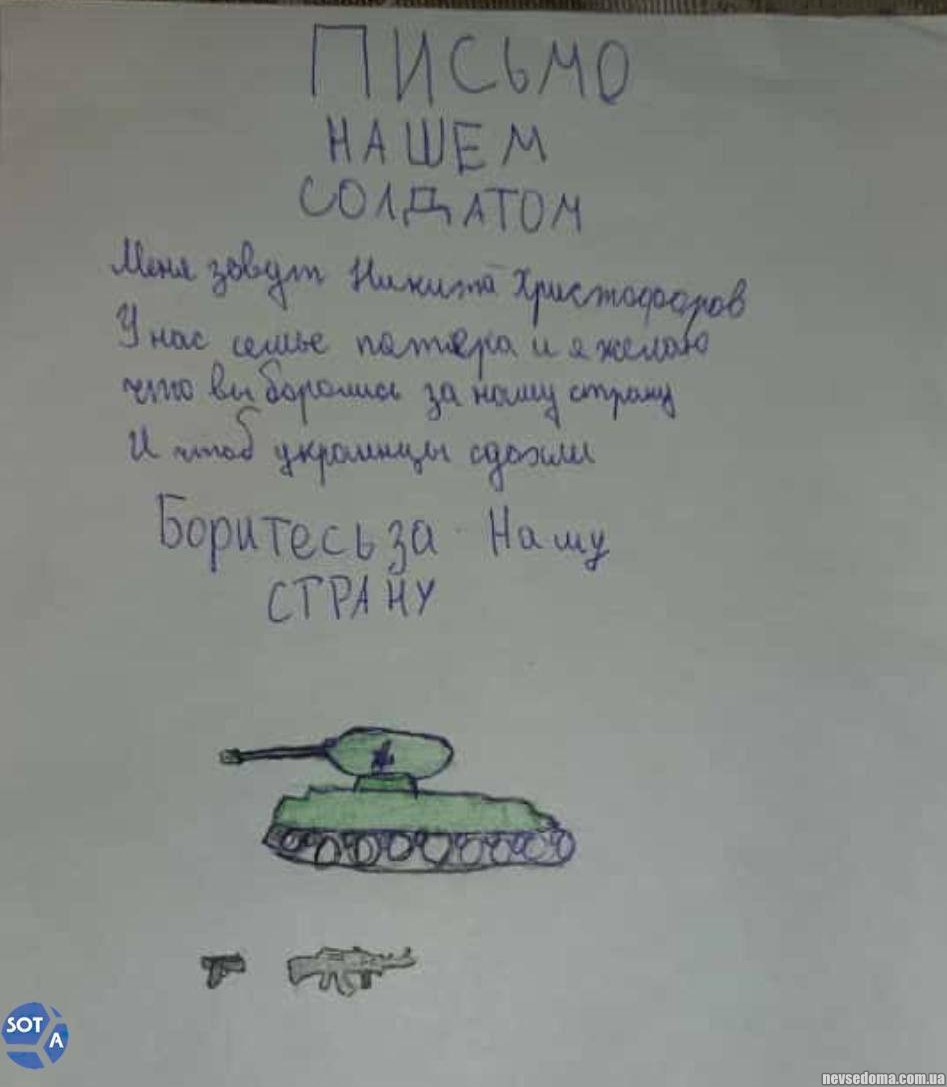 ПИСЬМО
НАШЕМ
СОЛДАТОМ
Меня зовут Никита Христофоров
У нас семье патера и я желаю
что вы боролись за нашу страну
И чтоб украинцы сдохли
Боритесь за Нашу
СТРАНУ
SOTA
nevsedoma.com.ua